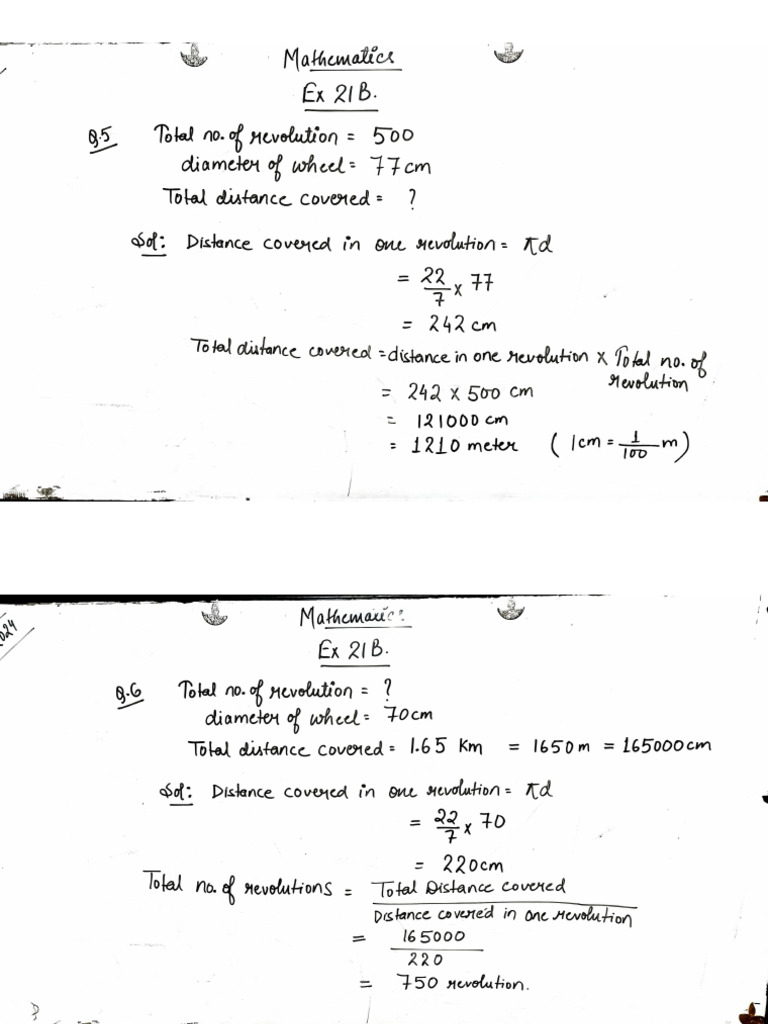 Mathematics
Ex 21B.
Q.5 Total no. of revolution = 500
diameter of wheel = 77cm
Total distance covered = ?
Sol: Distance covered in one revolution = πd
= 22/7 × 77
= 242 cm
Total distance covered = distance in one revolution × Total no. of revolution
= 242 × 500 cm
= 121000 cm
= 1210 meter (1cm = 1/100 m)
024
Mathematics
Ex 21B.
Q.6 Total no. of revolution = ?
diameter of wheel = 70cm
Total distance covered = 1.65 Km = 1650 m = 165000 cm
Sol: Distance covered in one revolution = πd
= 22/7 × 70
= 220cm
Total no. of revolutions = Total Distance covered / Distance covered in one revolution
= 165000 / 220
= 750 revolution.